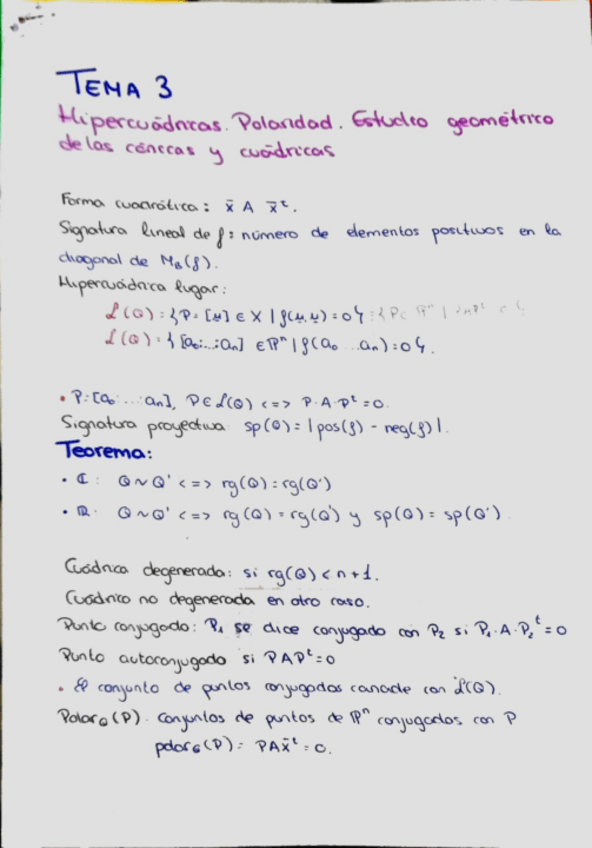 TEMA 3
Hipercuádricas. Polaridad. Estudio geométrico
de las cónicas y cuádricas
Forma cuadrática: x̄ A x̄ᵗ.
Signatura lineal de f: número de elementos positivos en la
diagonal de M_B(f).
Hipercuádrica lugar:
L(Q) = {P = [u] ∈ X | f(u,u) = 0} = {P ∈ ℙⁿ |
L(Q) = {[a₀:...:aₙ] ∈ ℙⁿ | f(a₀...aₙ) = 0}.
• P = [a₀:...:aₙ], P ∈ L(Q) <=> P·A·Pᵗ = 0.
Signatura proyectiva: sp(Q) = |pos(f) - neg(f)|.
Teorema:
• ℂ: Q ~ Q' <=> rg(Q) = rg(Q')
• ℝ: Q ~ Q' <=> rg(Q) = rg(Q') y sp(Q) = sp(Q').
Cuádrica degenerada: si rg(Q) < n+1.
Cuádrica no degenerada en otro caso.
Punto conjugado: P₁ se dice conjugado con P₂ si P₁·A·P₂ᵗ = 0
Punto autoconjugado si PAPᵗ = 0
• El conjunto de puntos conjugados concide con L(Q).
Polar_Q(P): Conjuntos de puntos de ℙⁿ conjugados con P
polar_Q(P) = PAx̄ᵗ = 0.